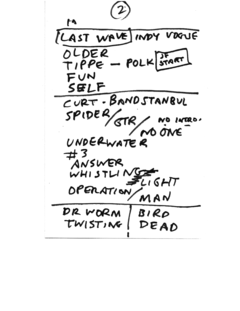 2
LAST WAVE INDY VOGUE
OLDER
TIPPE - POLK IF START
FUN
SELF
CURT - BANDSTANBUL
SPIDER / GTR / NO INTRO.
NO ONE
UNDERWATER
#3
ANSWER
WHISTLING
LIGHT
OPERATION / MAN
DR WORM | BIRD
TWISTING | DEAD